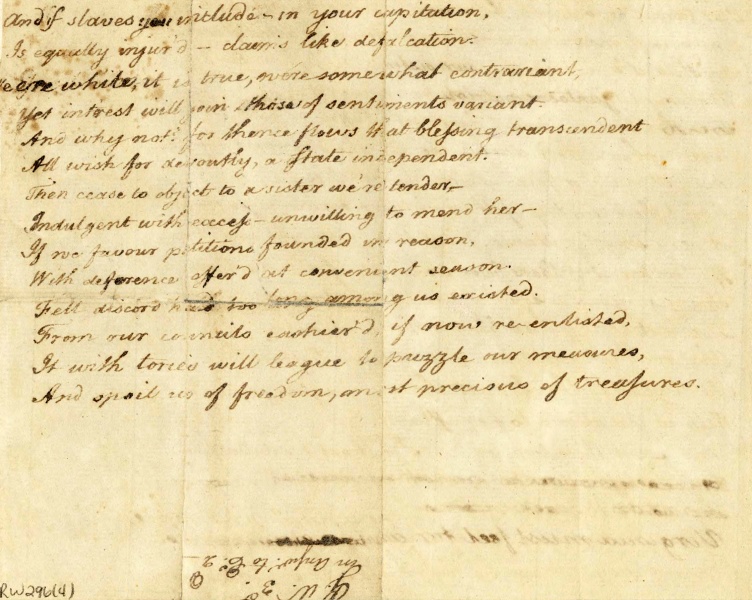 And if slaves you include – in your capitation,
Is equally injur'd – claims like defalcation.
We are white, it is true, we're somewhat contrariant,
Yet intrest will join those of sentiments variant.
And why not? for thence flows that blessing transcendent
All wish for devoutly, a State independent.
Then cease to object to a sister we're tender –
Indulgent with excess – unwilling to mend her –
If we favour petitions founded in reason,
With deference offer'd at convenient season.
Fell discord had too long among us existed.
From our councils cashier'd, if now re-enlisted,
It with tories will league to puzzle our measures,
And spoil us of freedom, most precious of treasures.
in answer to
RW296(4)